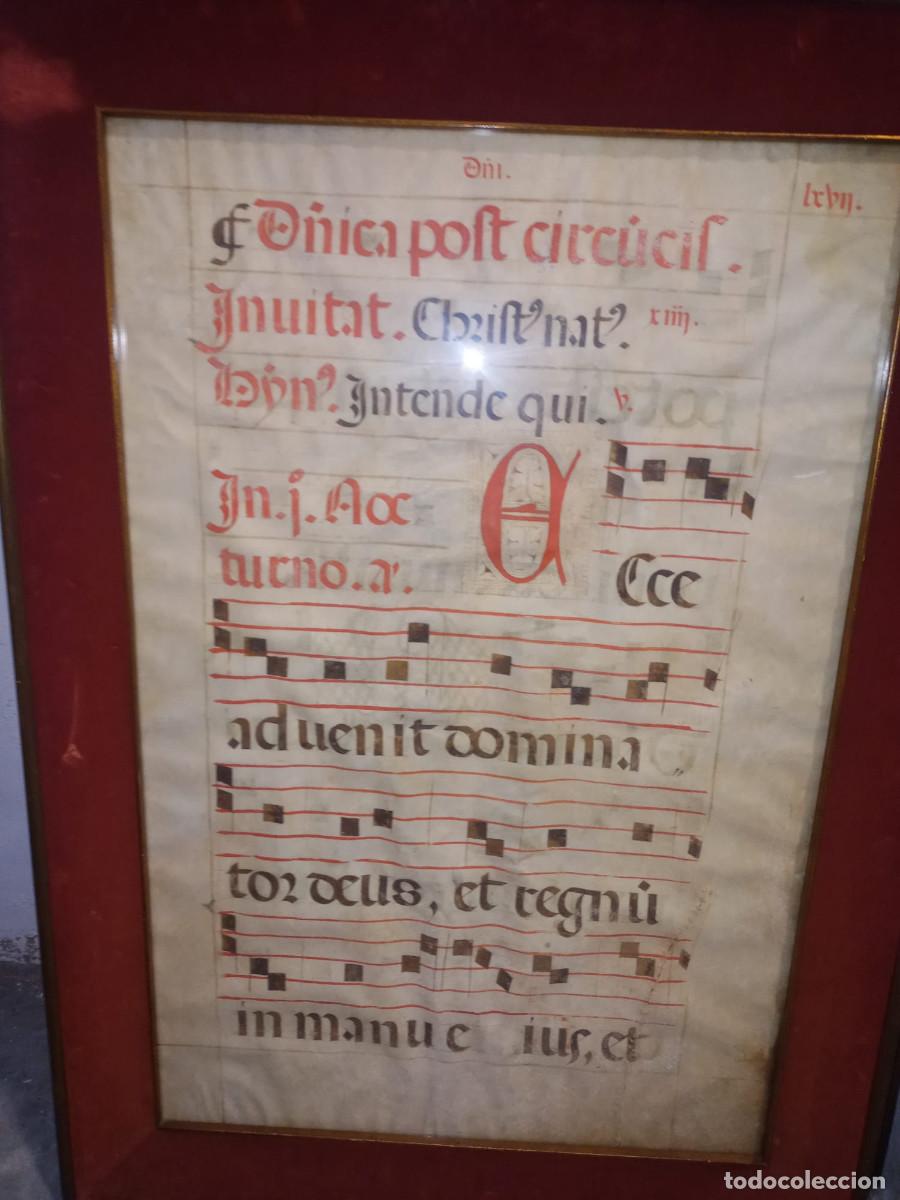 Dn̄i.
lxvij.
¶ Dn̄ica post circūcis.
Inuitat. Christꝰ natꝰ. xiiij.
Hynꝰ. Intende qui. v.
In. j. Noc
turno. a.
Ecce
aduenit domina
tor deus, et regnū
in manu eius, et
todocoleccion